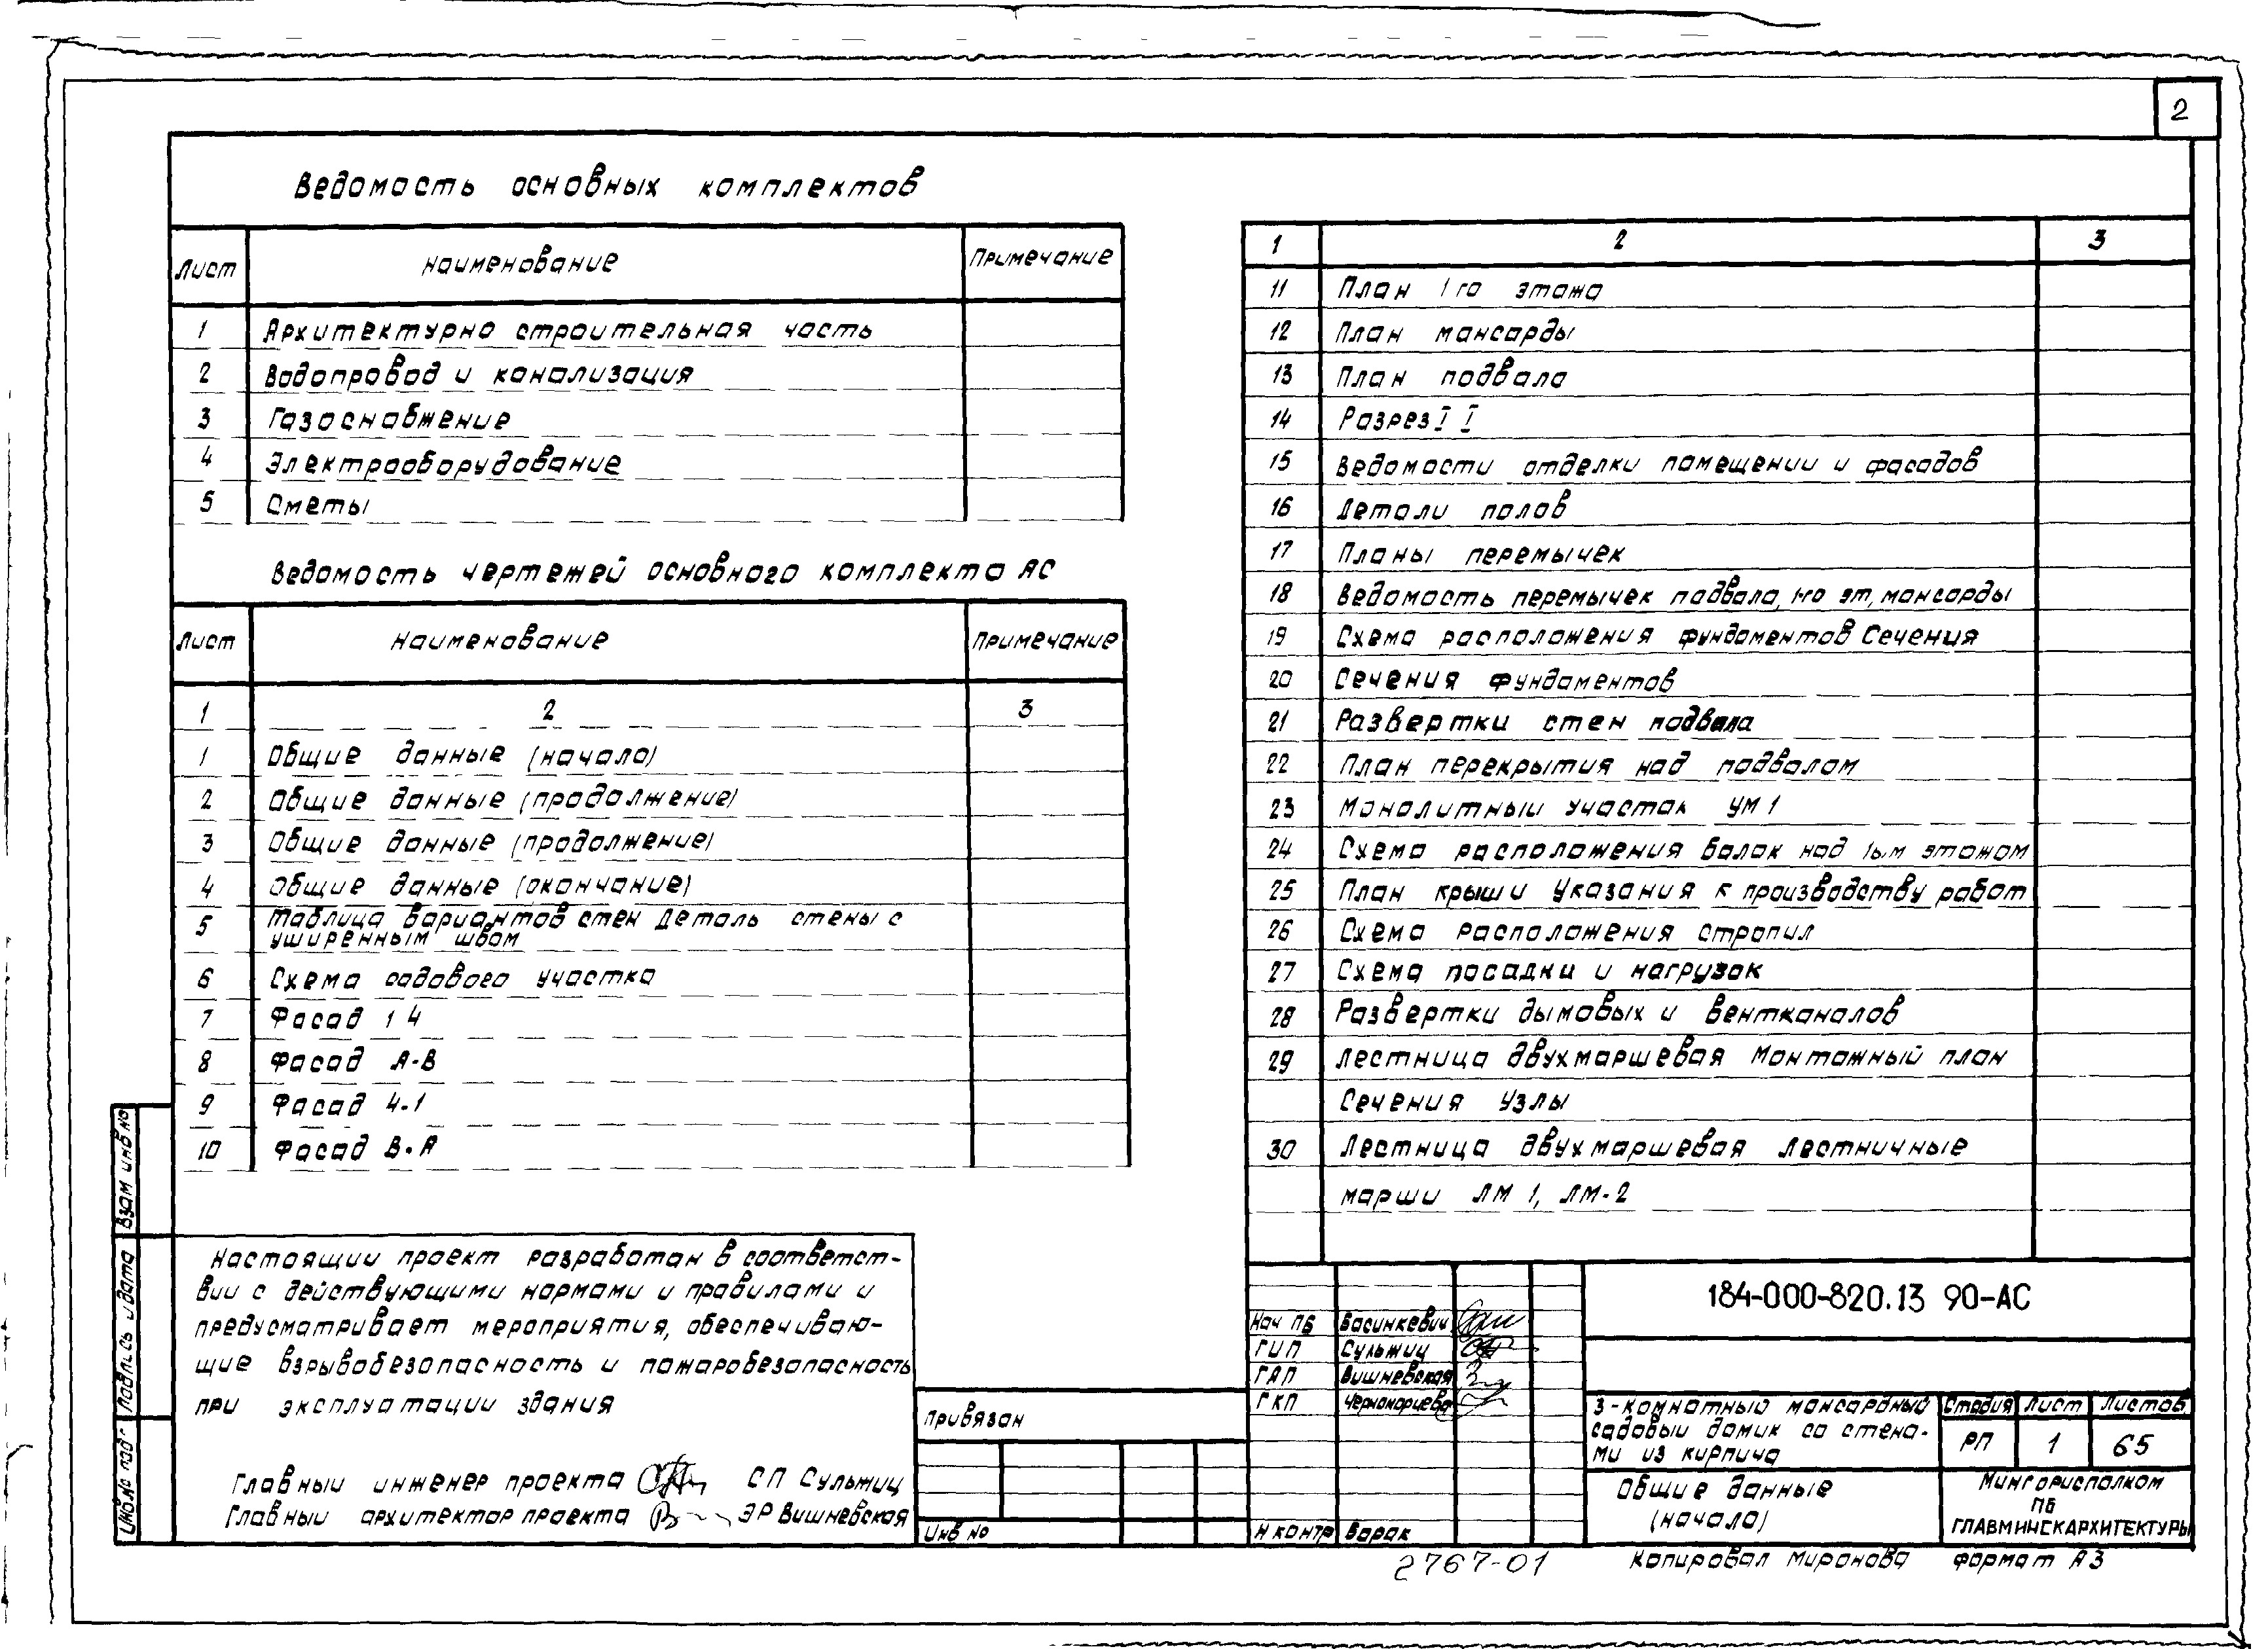 2
Ведомость основных комплектов
Лист Наименование Примечание
1 Архитектурно строительная часть
2 Водопровод и канализация
3 Газоснабжение
4 Электрооборудование
5 Сметы
Ведомость чертежей основного комплекта АС
Лист Наименование Примечание
1 2 3
1 Общие данные (начало)
2 Общие данные (продолжение)
3 Общие данные (продолжение)
4 Общие данные (окончание)
5 Таблица вариантов стен Деталь стены с
уширенным швом
6 Схема садового участка
7 Фасад 1 4
8 Фасад А-В
9 Фасад 4-1
10 Фасад В-А
1 2 3
11 План 1го этажа
12 План мансарды
13 План подвала
14 Разрез I I
15 Ведомости отделки помещении и фасадов
16 Детали полов
17 Планы перемычек
18 Ведомость перемычек подвала, 1-го эт, мансарды
19 Схема расположения фундаментов Сечения
20 Сечения фундаментов
21 Развертки стен подвала
22 План перекрытия над подвалом
23 Монолитный участок УМ 1
24 Схема расположения балок над 1ым этажом
25 План крыши Указания к производству работ
26 Схема расположения стропил
27 Схема посадки и нагрузок
28 Развертки дымовых и вентканалов
29 Лестница двухмаршевая Монтажный план
Сечения Узлы
30 Лестница двухмаршевая Лестничные
марши ЛМ 1, ЛМ-2
Настоящии проект разработан в соответст-
вии с действующими нормами и правилами и
предусматривает мероприятия, обеспечиваю-
щие взрывобезопасность и пожаробезопасность
при эксплуатации здания
Главный инженер проекта СП Сульжиц
Главный архитектор проекта ЭР Вишневская
Взам инв №
Подпись и дата
Инв № под
Привязан
Инв №
Нач ПБ Васинкевич
ГИП Сульжиц
ГАП Вишневская
ГКП Черноморцева
Н контр Варак
184-000-820.13 90-АС
3-комнатный мансардный
садовый домик со стена-
ми из кирпича
Стадия Лист Листов
РП 1 65
Общие данные
(начало)
Мингорисполком
ПБ
ГЛАВМИНСКАРХИТЕКТУРЫ
2767-01 Копировал Миронова Формат А3